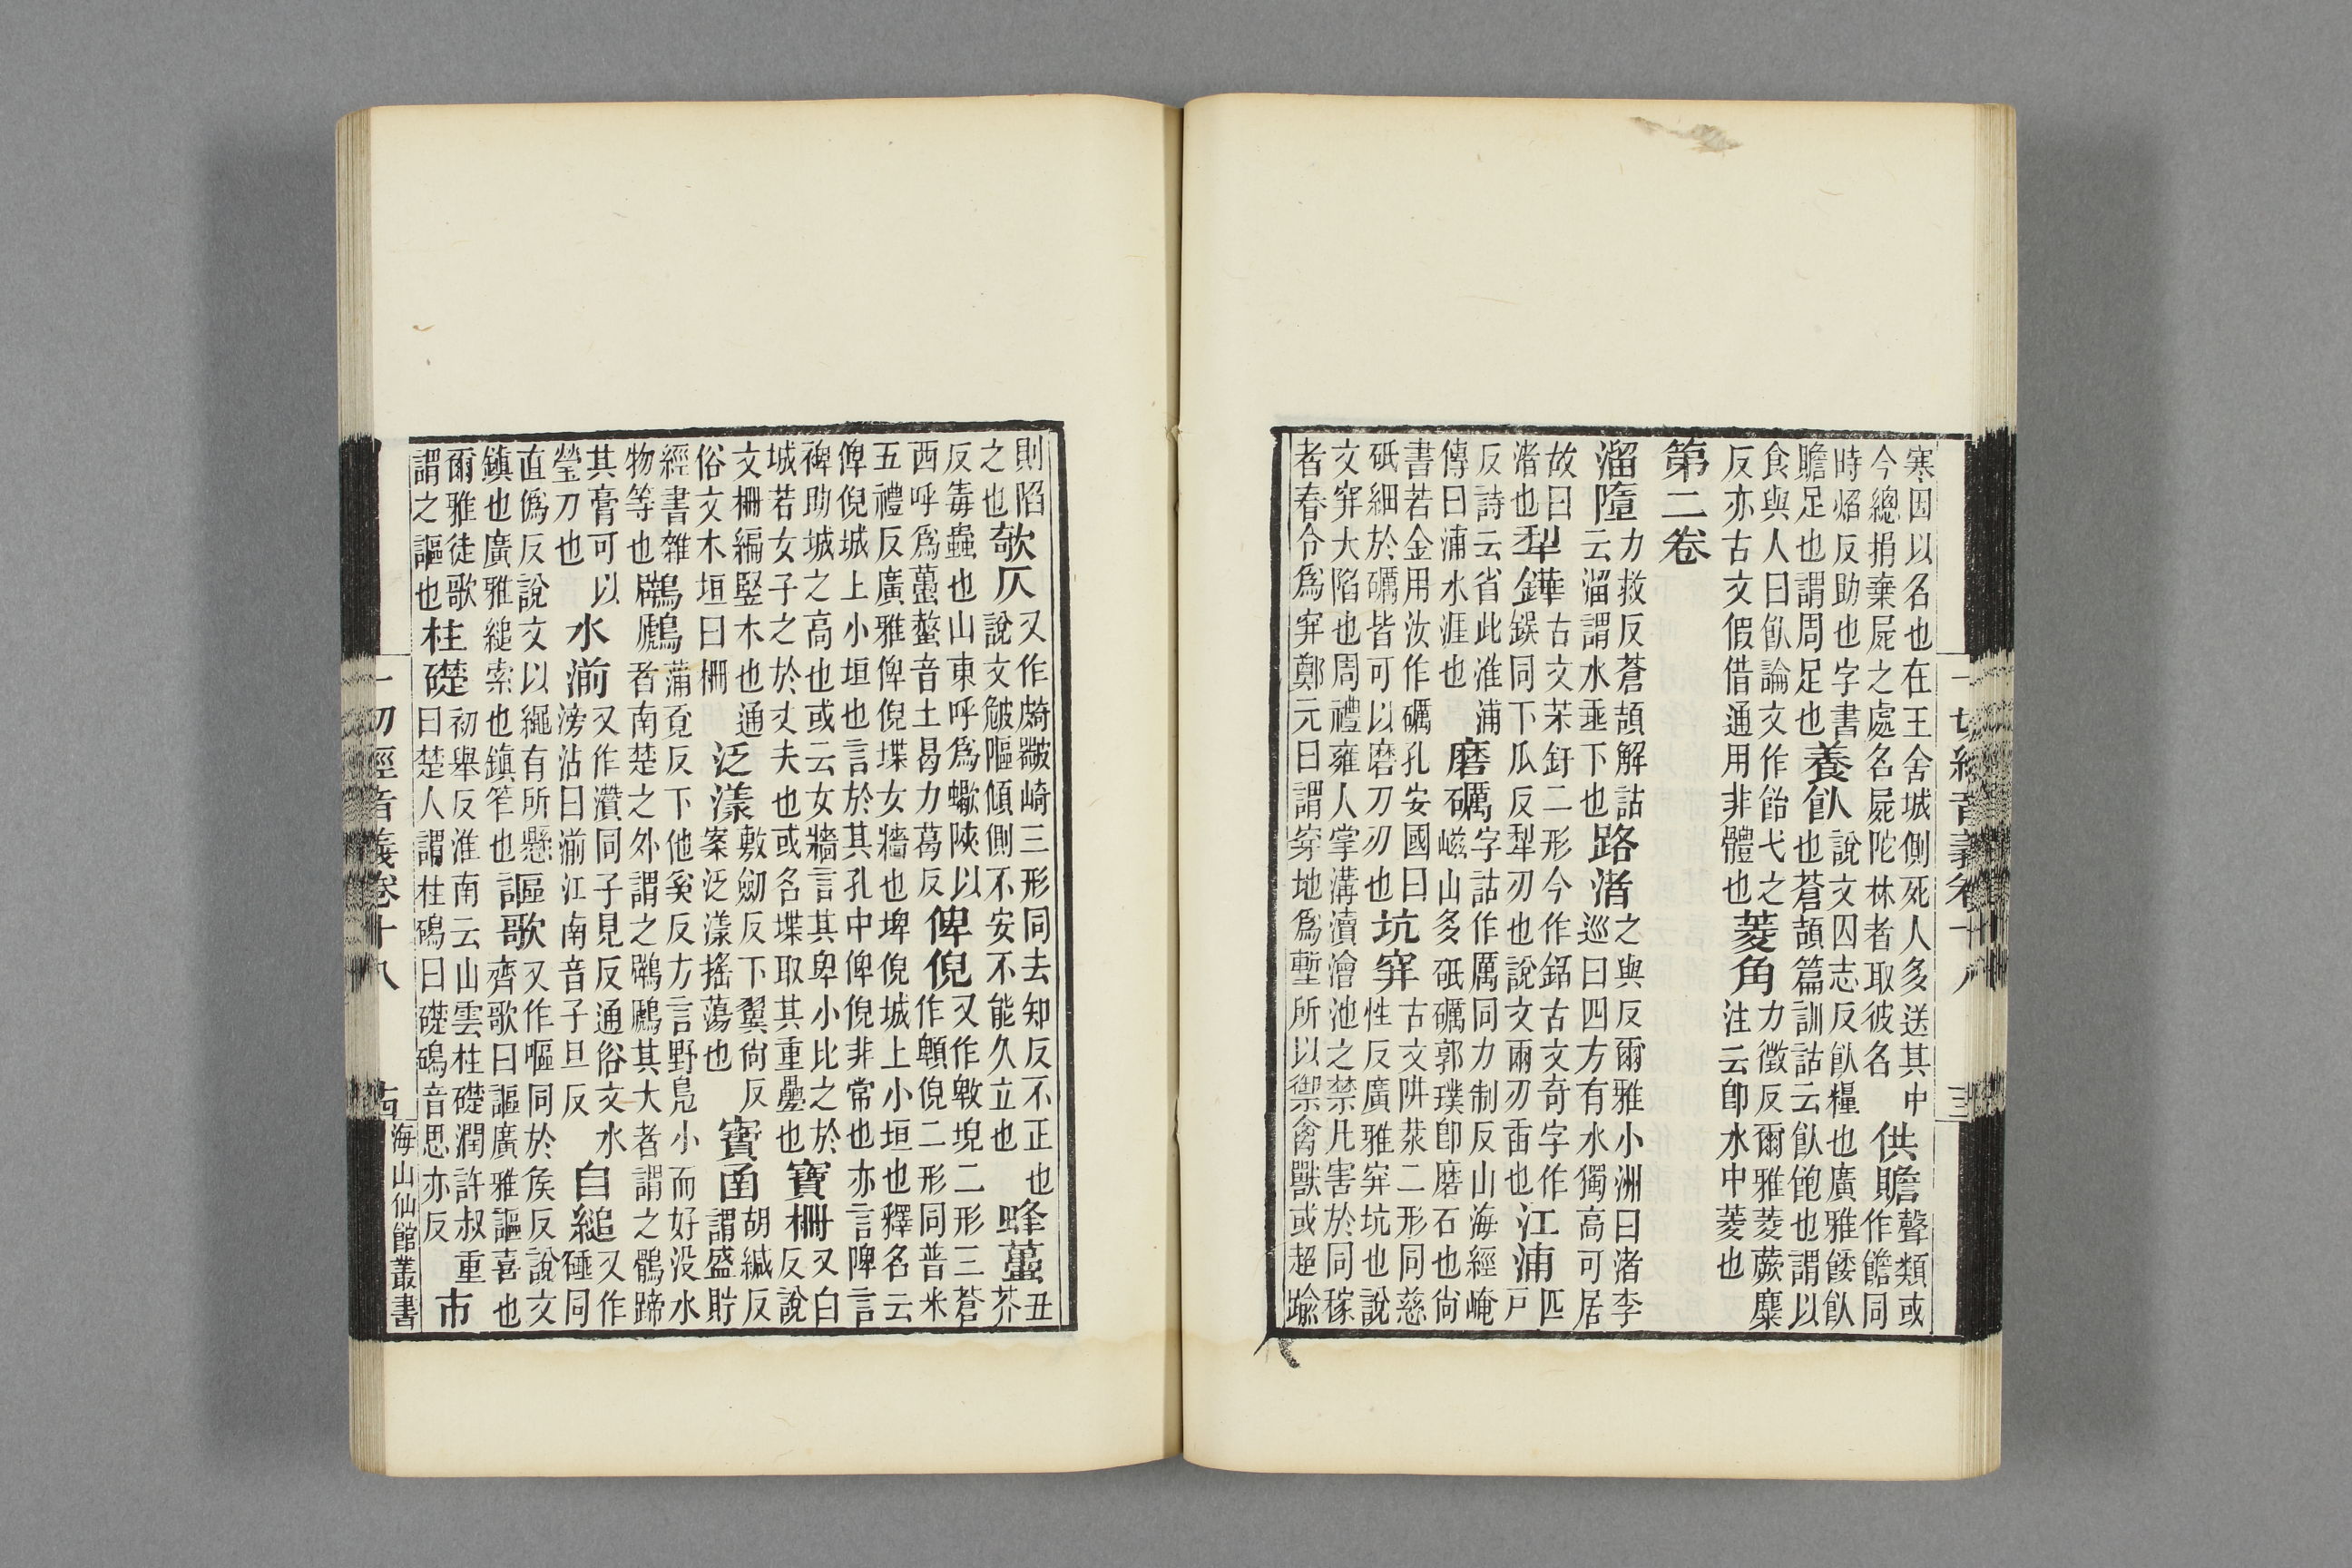 寒因以名也在王舍城側死人多送其中今總捐棄屍之處名屍陀林者取彼名供贍聲類或作饍同
時焰反助也字書贍足也謂周足也養飤說文囚志反飤糧也廣雅餧飤也蒼頡篇訓詁云飤飽也謂以
食與人曰飤論文作飴弋之反亦古文假借通用非體也菱角力徵反爾雅菱蕨麋注云卽水中菱也
第二卷
溜墮力救反蒼頡解詁云溜謂水垂下也路渚之與反爾雅小洲曰渚李巡曰四方有水獨高可居
故曰渚也犁鏵古文茉釪二形今作鋘古文奇字作鋘同下瓜反犁刃也說文爾刃臿也江浦匹戸
反詩云省此淮浦傳曰浦水涯也磨礪字詁作厲同力制反山海經崦嵫山多砥礪郭璞卽磨石也尙
書若金用汝作礪孔安國曰砥細於礪皆可以磨刀刃也坑穽古文阱汬二形同慈性反廣雅穽坑也說
文穽大陷也周禮雍人掌溝瀆澮池之禁凡害於同稼者春令爲穽鄭元曰謂穿地爲塹所以禦禽獸或超踰
一切經音義卷十八 三
則陷之也欹仄又作崎三形同去知反不正也說文傾側不安不能久立也蜂蠆丑芥
反毒蟲也山東呼爲蠍陝以西呼爲蠆螫音土曷力葛反俾倪又作堄二形三蒼作倪二形同普米
五禮反廣雅俾倪堞女牆也埤倪城上小垣也釋名云俾倪城上小垣也言於其孔中俾倪非常也亦言陴言
裨助城之高也或云女牆言其卑小比之於城若女子之於丈夫也或名堞取其重疊也寶柵又白反說
文柵編竪木也通俗文木垣曰柵泛漾敷劒反下翼尙反案泛漾搖蕩也寶函胡緘反謂盛貯
經書雜物等也鷿鷉蒲覔反下他奚反方言野鳧小而好没水者南楚之外謂之鷿鷉其大者謂之鶻蹄
其膏可以瑩刀也水湔又作灒同子見反通俗文水滂沾曰湔江南音子旦反自縋又作硾同
直僞反說文以繩有所懸鎮也廣雅縋索也鎮笮也謳歌又作嘔同於侯反說文齊歌曰謳廣雅謳喜也
爾雅徒歌謂之謳也柱礎初舉反淮南云山雲柱礎潤許叔重曰楚人謂柱碢曰礎碢音思亦反市
一切經音義卷十八
海山仙館叢書